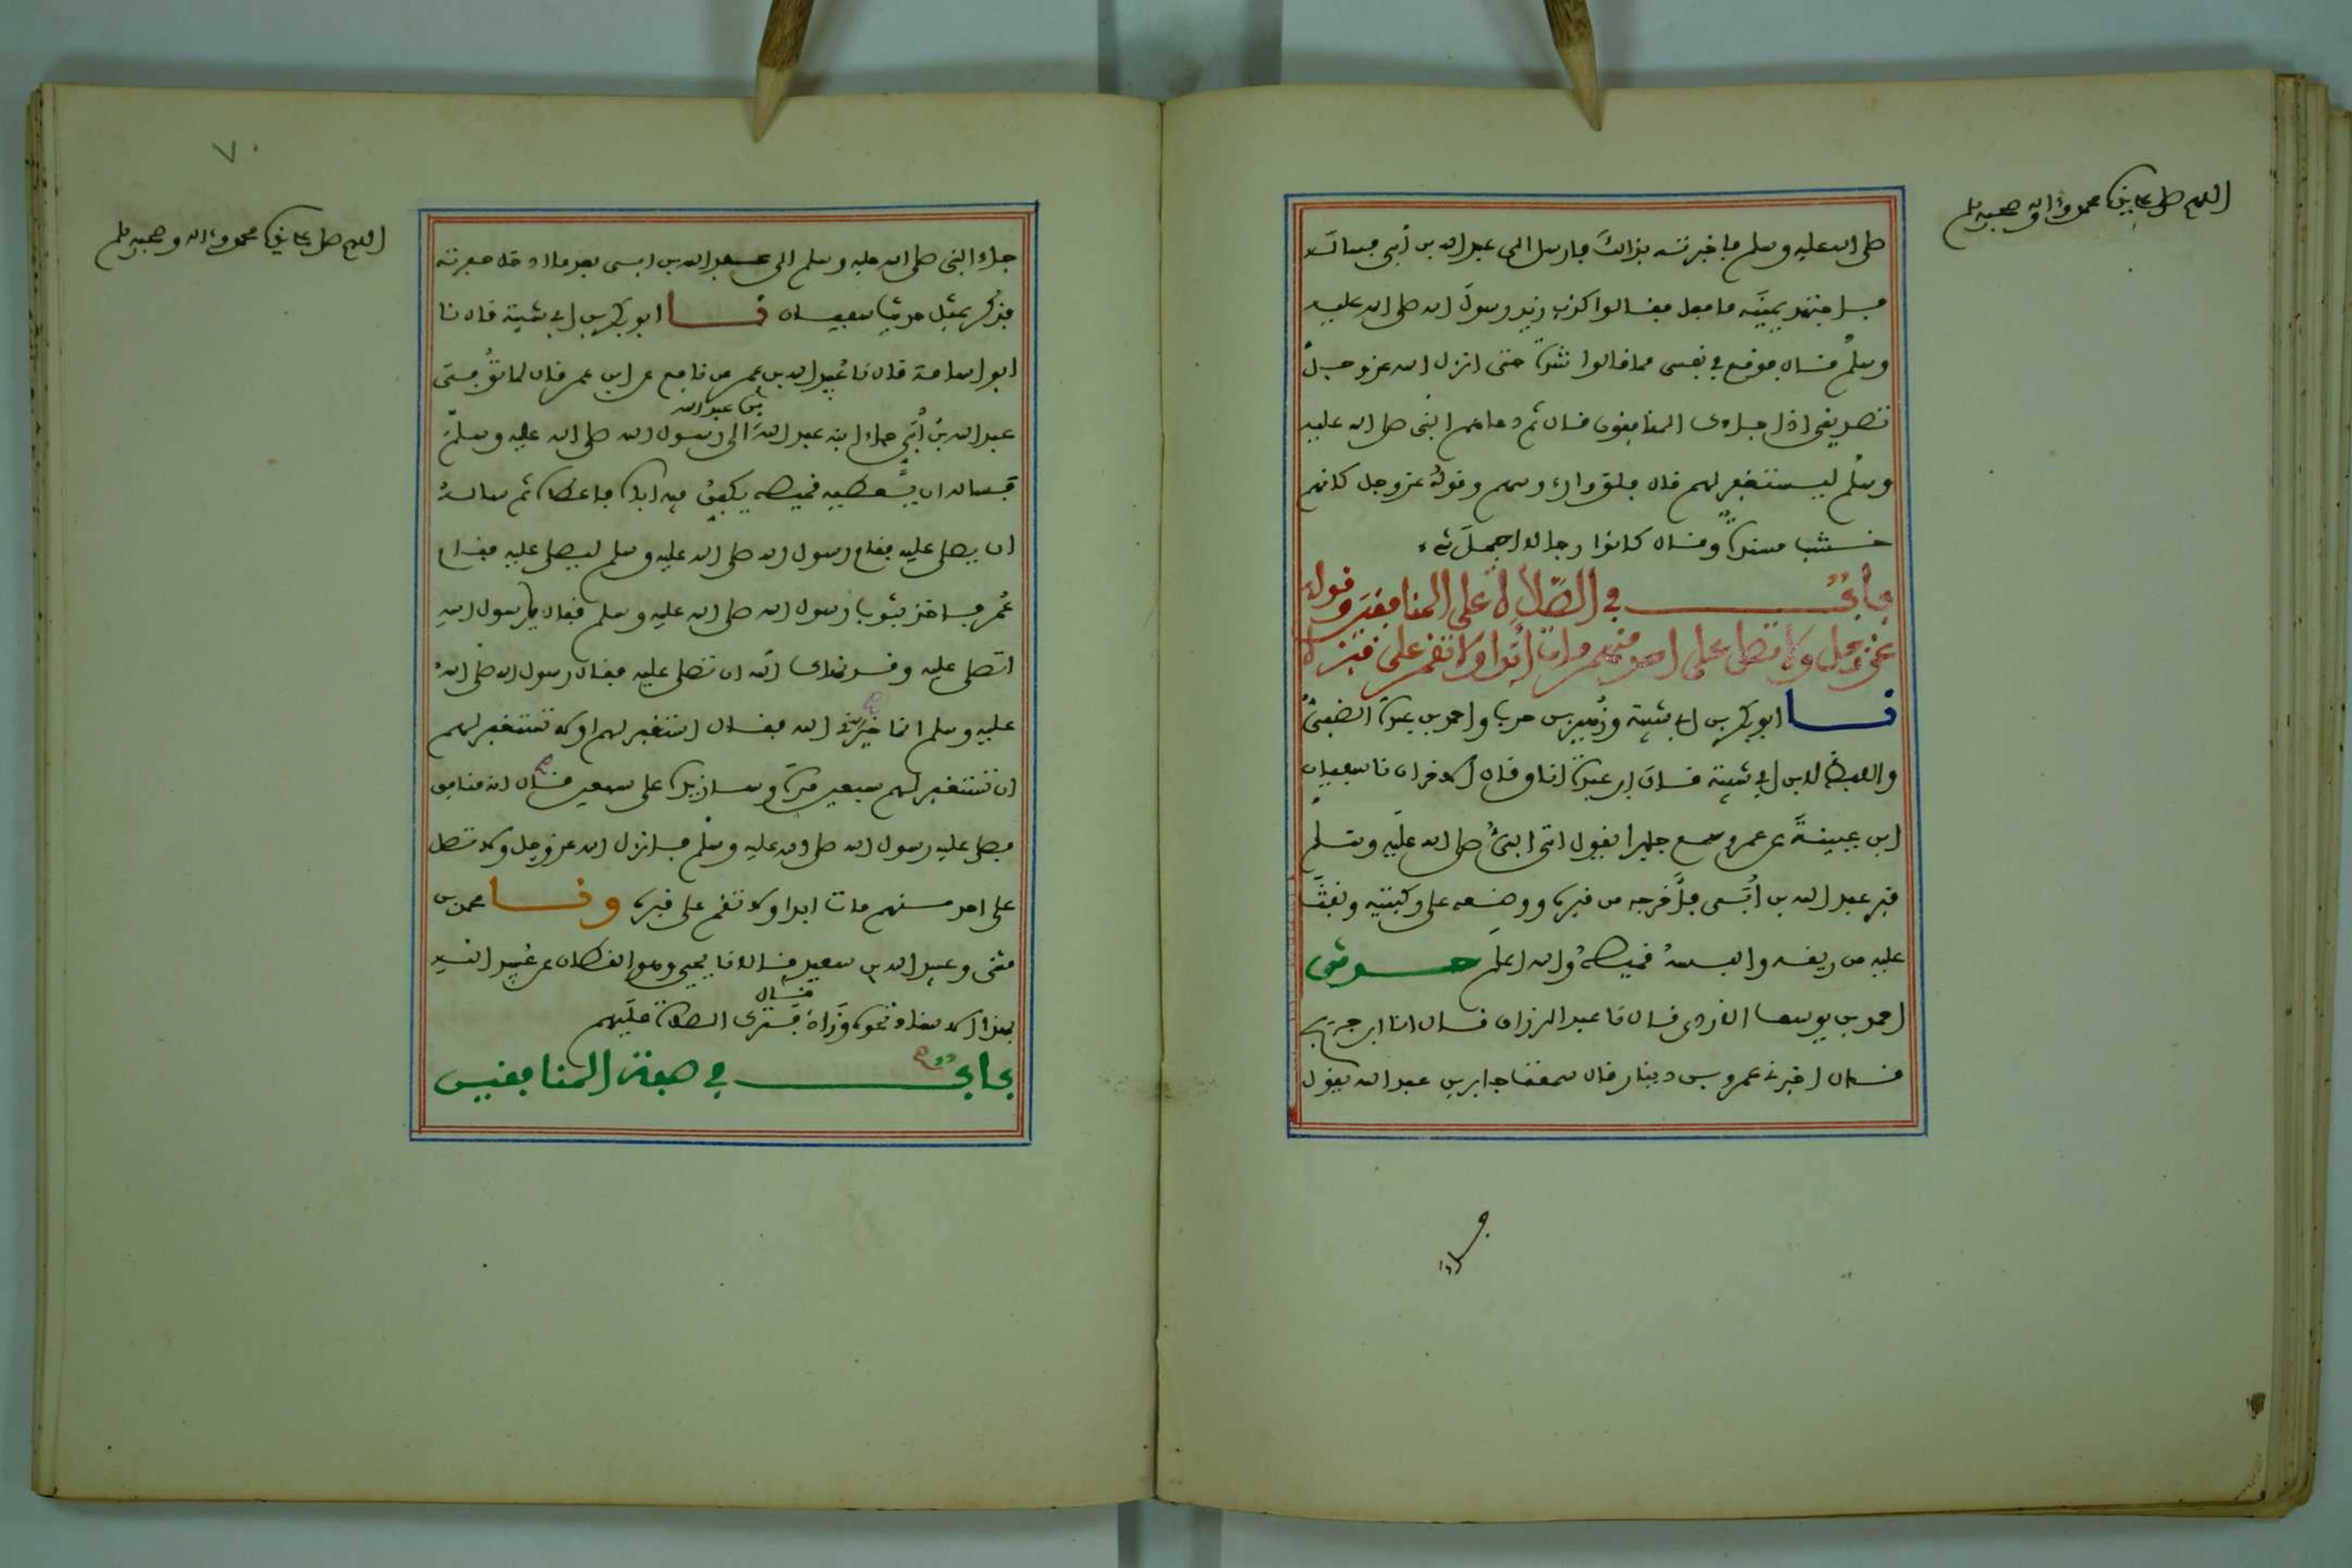 اللهم صل على نبيك محمد وءاله وصحبه وسلم
صلى الله عليه وسلم فأخبرته بذالك فارسل الى عبد الله بن أبي فسأله
فاجتهد يمينه ما فعل فقالوا كذب زيد رسول الله صلى الله عليه
وسلم قال فوقع في نفسي مما قالوا شدة حتى انزل الله عز وجل
تصديقي اذا جاءك المنافقون قال ثم دعاهم النبي صلى الله عليه
وسلم ليستغفر لهم قال فلووا رءوسهم وقوله عز وجل كانهم
خشب مسندة وقال كانوا رجالا اجمل شيء
باب في الصلاة على المنافقين وقوله
عز وجل ولا تصل على احد منهم مات أبدا ولا تقم على قبره
نا ابو بكر بن ابي شيبة وزهير بن حرب واحمد بن عبدة الضبي
واللفظ لابن ابي شيبة قال ابن عبدة انا وقال الاخران نا سفيان
ابن عيينة عن عمرو سمع جابرا يقول اتى النبي صلى الله عليه وسلم
قبر عبد الله بن أبي فأخرجه من قبره ووضعه على ركبتيه ونفث
عليه من ريقه والبسه قميصه والله اعلم حدثني
احمد بن يوسف الازدي قال نا عبد الرزاق قال انا ابن جريج
قال اخبرني عمرو بن دينار قال سمعت جابر بن عبد الله يقول
جاء
٧٠
اللهم صل على نبيك محمد وءاله وصحبه وسلم
جاء النبي صلى الله عليه وسلم الى عبد الله بن ابي بعد ما ادخل حفرته
فذكر بمثل حديث سفيان نا ابو بكر بن ابي شيبة قال نا
ابو اسامة قال نا عبيد الله بن عمر عن نافع عن ابن عمر قال لما توفي
عبد الله بن أبي جاء ابنه عبد الله بن عبد الله الى رسول الله صلى الله عليه وسلم
فساله ان يعطيه قميصه يكفن فيه اباه فاعطاه ثم ساله
ان يصلي عليه فقام رسول الله صلى الله عليه وسلم ليصلي عليه فقام
عمر فاخذ بثوب رسول الله صلى الله عليه وسلم فقال يا رسول الله
اتصلي عليه وقد نهاك الله ان تصلي عليه فقال رسول الله صلى الله
عليه وسلم انما خيرني الله فقال استغفر لهم او لا تستغفر لهم
ان تستغفر لهم سبعين مرة وسازيده على سبعين قال انه منافق
فصلى عليه رسول الله صلى الله عليه وسلم فانزل الله عز وجل ولا تصل
على احد منهم مات ابدا ولا تقم على قبره ونا محمد بن
مثنى وعبيد الله بن سعيد قالا نا يحيى وهو القطان عن عبيد الله
بهذا الاسناد نحوه وزاد قال فترك الصلاة عليهم
باب في صفة المنافقين